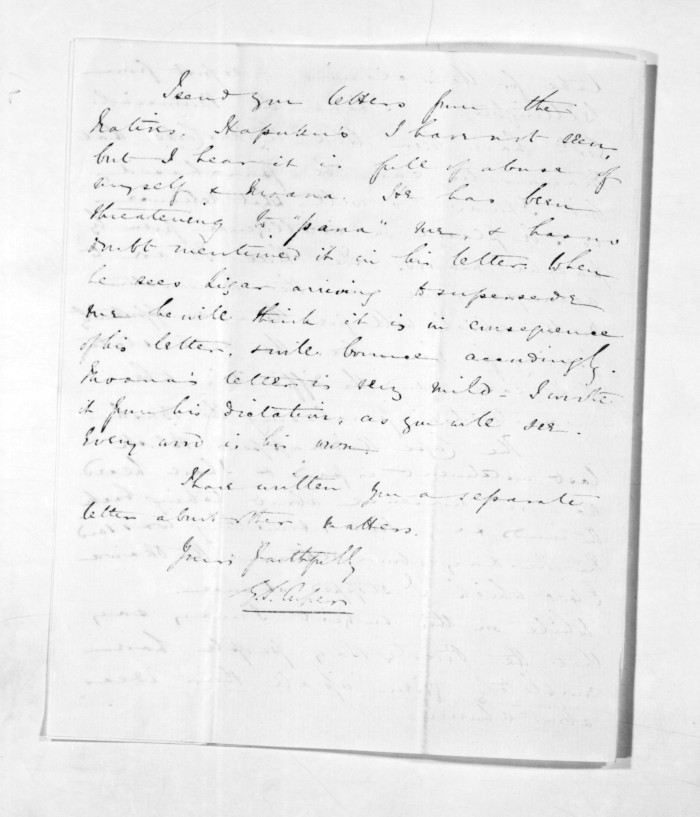 I send you letters from the
Natives. Hapuku's I have not seen,
but I hear it is full of abuse of
myself & Moana. He has been
threatening to "pana" me, & has no
doubt mentioned it in his letter. When
he sees Ligar arriving to supersede
me he will think it is in consequence
of his letter, & will bounce accordingly.
Moana's letter is very mild - I wrote
it from his dictation, as you will see.
Every word is his own.
I have written you a separate
letter about other matters.
Yours faithfully
G. S. Cooper